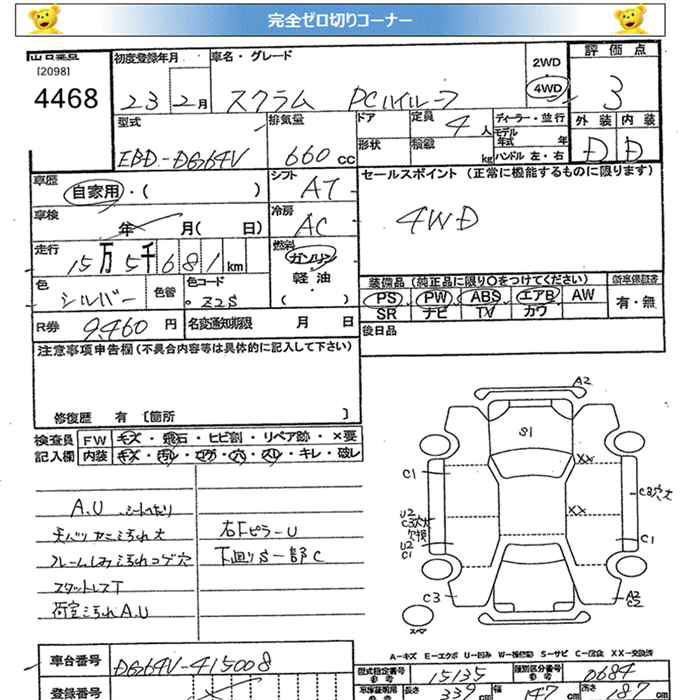 完全ゼロ切りコーナー
出品番号 初度登録年月 車名・グレード 2WD 評価点
[2098] 4WD
4468 23 2月 スクラム PCハイルーフ 3
型式 排気量 ドア 定員 4人 ディーラー・並行 外装 内装
モデル年式 年
EBD-DG64V 660cc 形状 積載 kg ハンドル 左・右 D D
車歴 自家用・( ) シフト AT セールスポイント(正常に機能するものに限ります)
車検 年 月( 日) 冷房 AC 4WD
走行 15万5千681km 燃料 ガソリン
軽油
( )
色 シルバー 色替 色コード Z2S
装備品(純正品に限り○をつけてください) 新車保証書
PS PW ABS エアB AW 有・無
SR ナビ TV カワ
R券 9,460円 名変通知期限 月 日 後日品
注意事項申告欄(不具合内容等は具体的に記入して下さい)
修復歴 有 [箇所 ]
検査員 FW キズ・飛石・ヒビ割・リペア跡・×要
記入欄 内装 キズ・汚レ・コゲ・穴・スレ・キレ・破レ
A.U シートへたり
天バリヤニ汚れ大
フレームしみ汚れコゲ穴
スタットレスT
荷室汚れA.U
右下ピラーU
下廻りS一部C
A2
S1
XX
C1
C3穴大
U2
C3穴大
欠損
XX
U2
C1
C1
C3
A2
C2
スペア
A-キズ E-エクボ U-凹み W-補修彩 S-サビ C-腐食 XX-交換済
車台番号 DG64V-415008
型式指定番号 15135 類別区分番号 0684
登録番号
長さ 339cm 幅 147cm 高さ 187cm